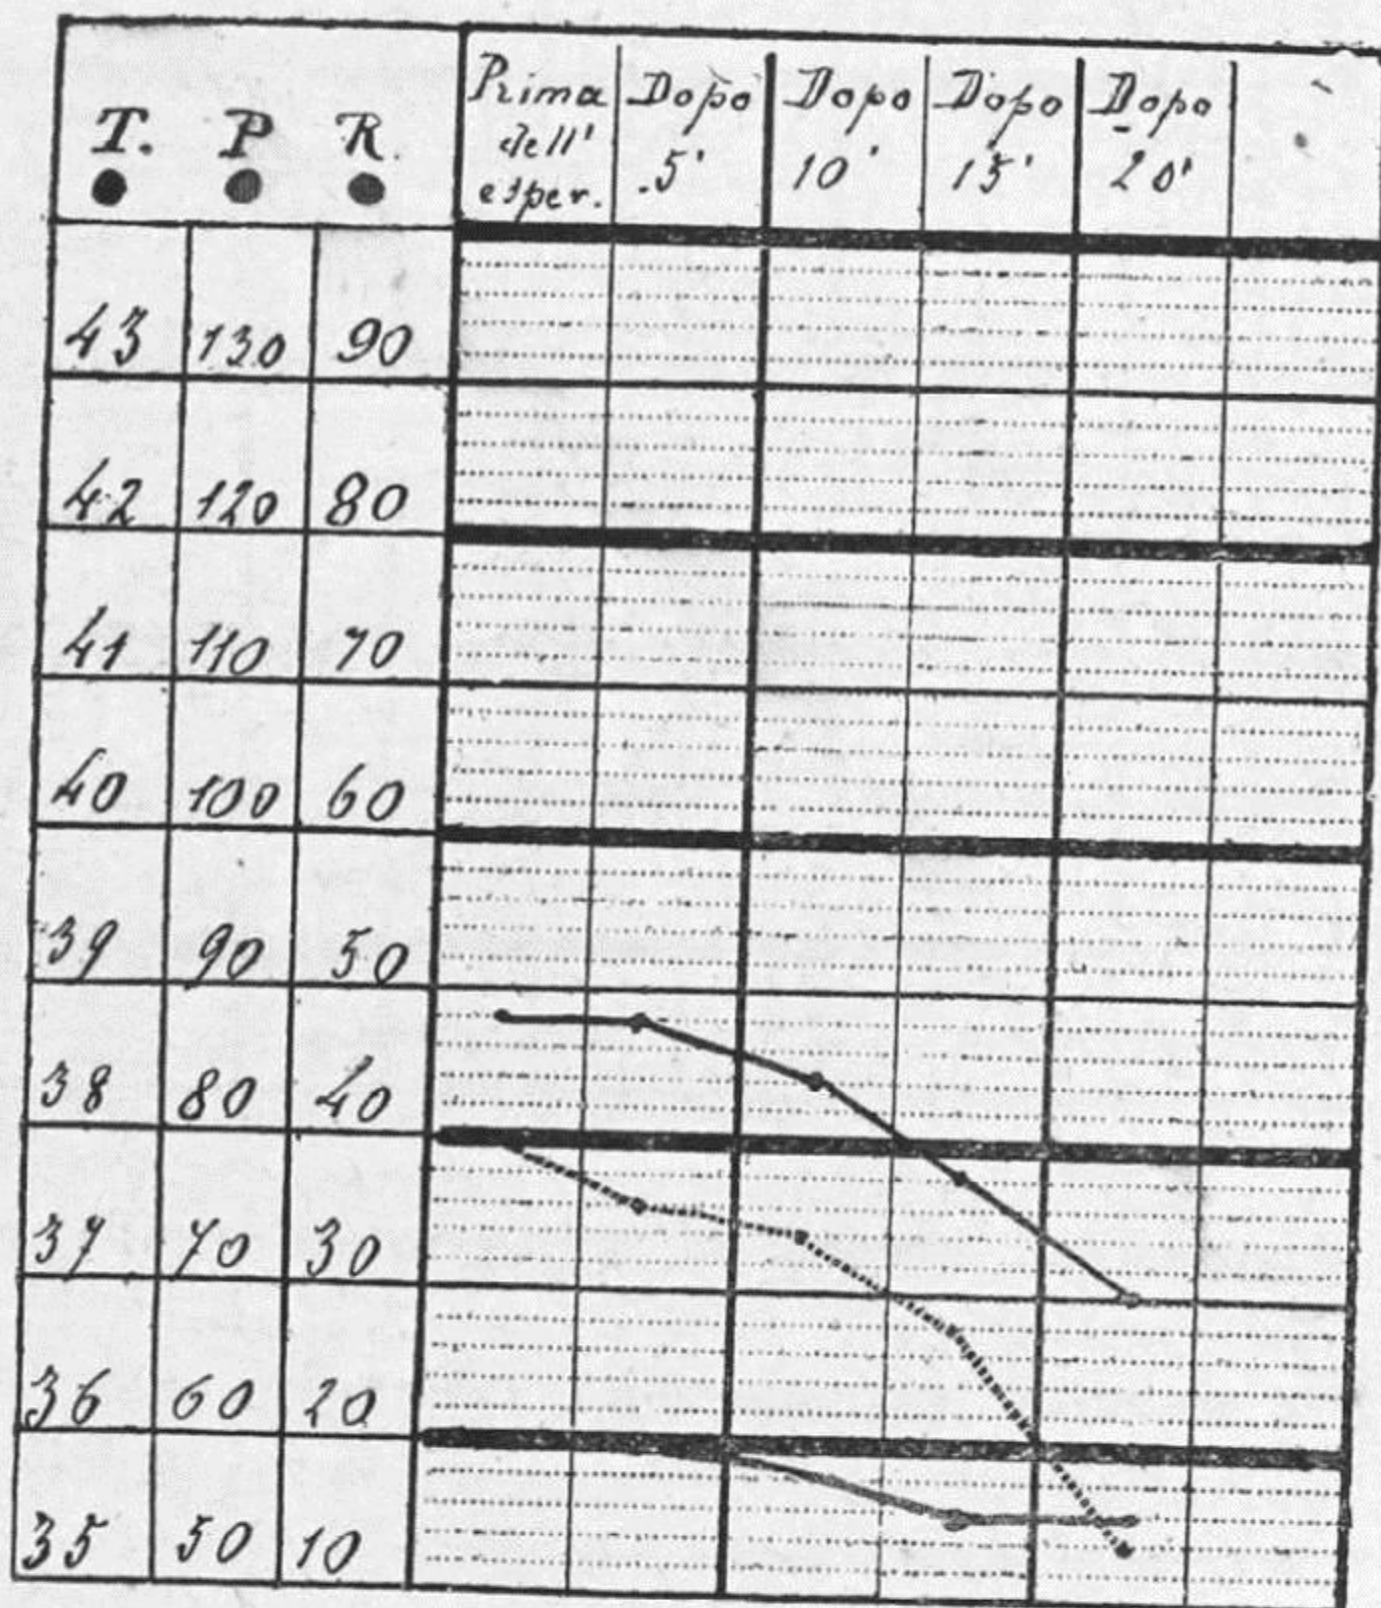 T. P R.
Prima dell' esper.
Dopo 5'
Dopo 10'
Dopo 15'
Dopo 20'
43 130 90
42 120 80
41 110 70
40 100 60
39 90 50
38 80 40
37 70 30
36 60 20
35 50 10